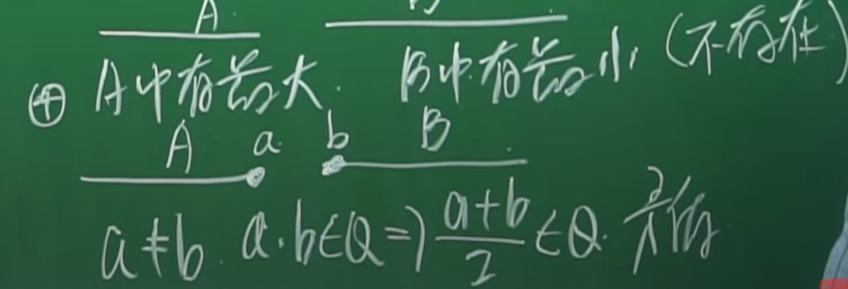 A.
④ A中有最大. B中有最小 (不存在)
A a. b B
a≠b. a.b∈Q⇒ a+b/2 ∈Q. 矛盾